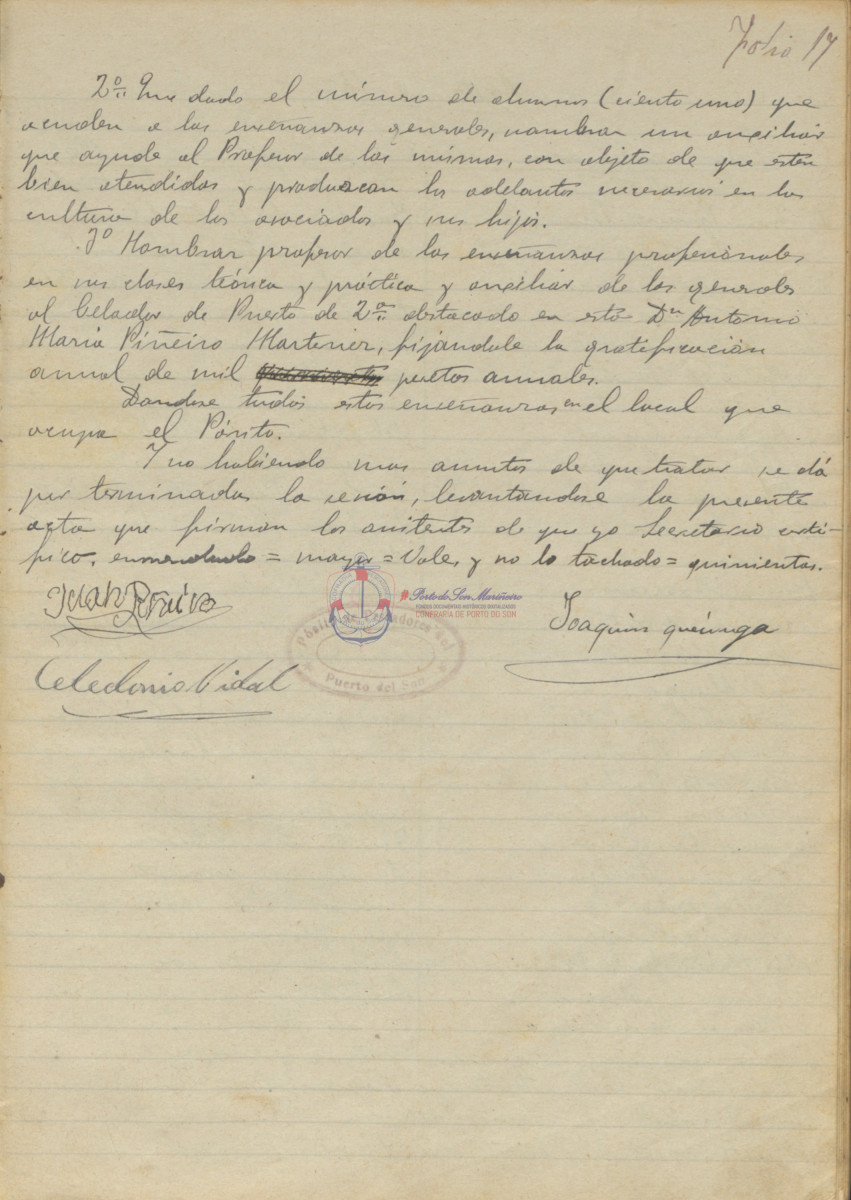 Folio 17
2º Que dado el número de alumnos (ciento uno) que
acuden a las enseñanzas generales, nombrar un auxiliar
que ayude al Profesor de las mismas, con objeto de que esten
bien atendidos y produzcan los adelantos necesarios en la
cultura de los asociados y sus hijos.
3º Nombrar profesor de las enseñanzas profesionales
en sus clases teórica y práctica y auxiliar de las generales
al Celador de Puerto de 2ª destacado en esta Dn Antonio
Maria Piñeiro Martinez, fijandole la gratificación
annal de mil pesetas anuales.
Dandose todos estos enseñanzas en el local que
ocupa el Pósito.
Y no habiendo mas asuntos de que tratar se dá
por terminadas la sesión, levantandose la presente
acta que firman los asistentes de que yo Secretario certi-
fico, enmendado = mayo = Vale, y no lo tachado = quinientas.
Juan
Porto do Son Mariñeiro
FONDOS DOCUMENTAIS HISTÓRICOS DIXITALIZADOS
CONFRARÍA DE PORTO DO SON
Joaquin
Pósito de Pescadores del
Puerto del Son
Celedonio Vidal